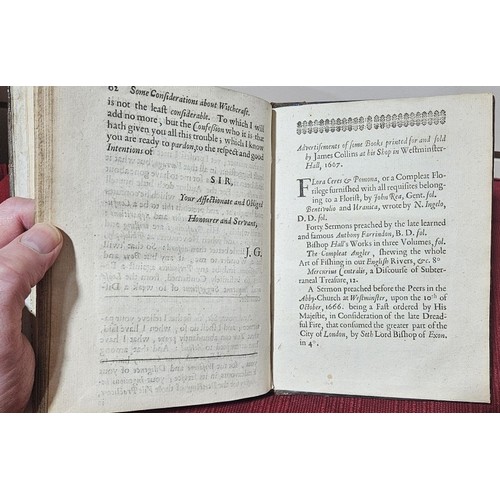 62 Some Considerations about Witchcraft.
is not the least considerable. To which I will
add no more, but the Confession who it is that
hath given you all this trouble; which I know
you are ready to pardon, to the respect and good
Intentions of
SIR,
Your Affectionate and Obliged
Honourer and Servant,
J. G.
Advertisements of some Books printed for and sold
by James Collins at his Shop in Westminster-
Hall, 1667.
Flora Ceres & Pomona, or a Compleat Flo-
rilege furnished with all requisites belong-
ing to a Florist, by John Rea, Gent. fol.
Bentivolio and Urania, wrote by N. Ingelo,
D. D. fol.
Forty Sermons preached by the late learned
and famous Anthony Farrindon, B. D. fol.
Bishop Hall's Works in three Volumes, fol.
The Compleat Angler, shewing the whole
Art of Fishing in our English Rivers, &c. 8o
Mercurius Centralis, a Discourse of Subter-
raneal Treasure, 12.
A Sermon preached before the Peers in the
Abby-Church at Westminster, upon the 10th of
October, 1666. being a Fast ordered by His
Majestie, in Consideration of the late Dread-
ful Fire, that consumed the greater part of the
City of London, by Seth Lord Bishop of Exon.
in 4o.